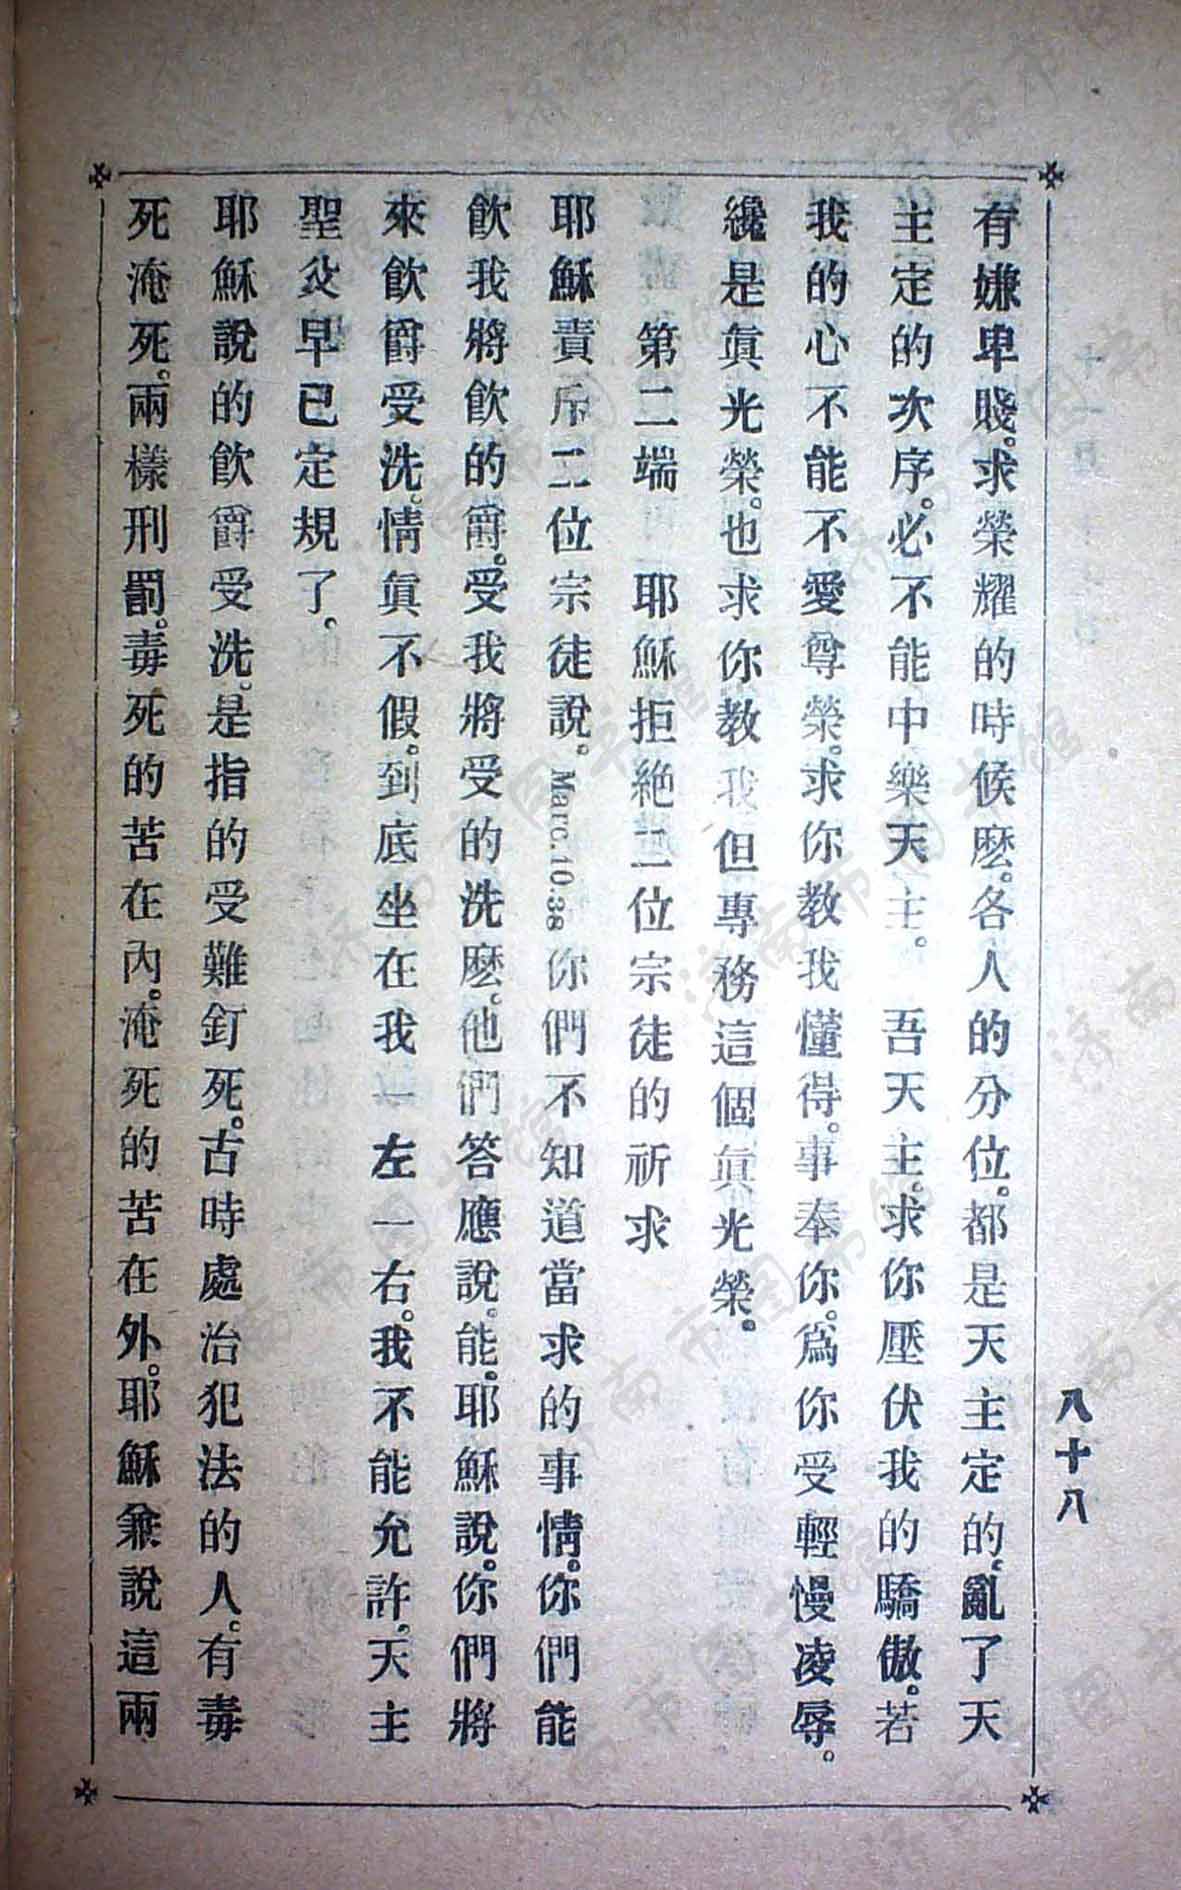 八十八
有嫌卑賤。求榮耀的時候麽。各人的分位。都是天主定的。亂了天
主定的次序。必不能中樂天主。　吾天主。求你壓伏我的驕傲。若
我的心不能不愛尊榮。求你教我懂得。事奉你。爲你受輕慢凌辱。
纔是眞光榮。也求你教我但專務這個眞光榮。
第二端　耶穌拒絶二位宗徒的祈求
耶穌責斥二位宗徒說。Marc. 10.38 你們不知道當求的事情。你們能
飮我將飮的爵。受我將受的洗麽。他們答應說。能。耶穌說。你們將
來飮爵受洗。情眞不假。到底坐在我一左一右。我不能允許。天主
聖父早已定規了。
耶穌說的飮爵受洗。是指的受難釘死。古時處治犯法的人。有毒
死淹死。兩樣刑罰。毒死的苦在內。淹死的苦在外。耶穌兼說這兩
济南市图书馆